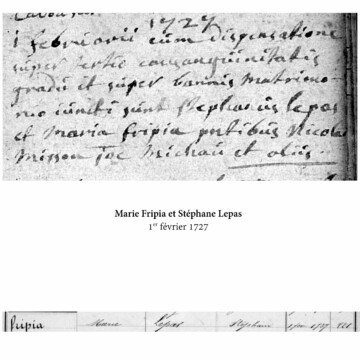 1727
1 februarii cum dispensatione
super tertio consanguinitatis
gradu et super bannis matrimo-
nio iuncti sunt Stephanus lepas
et Maria fripia testibus Nicolas
Misson Joe Michau et aliis
Marie Fripia et Stéphane Lepas
1er février 1727
fripia Marie Lepas Stéphane 1 fev 1727